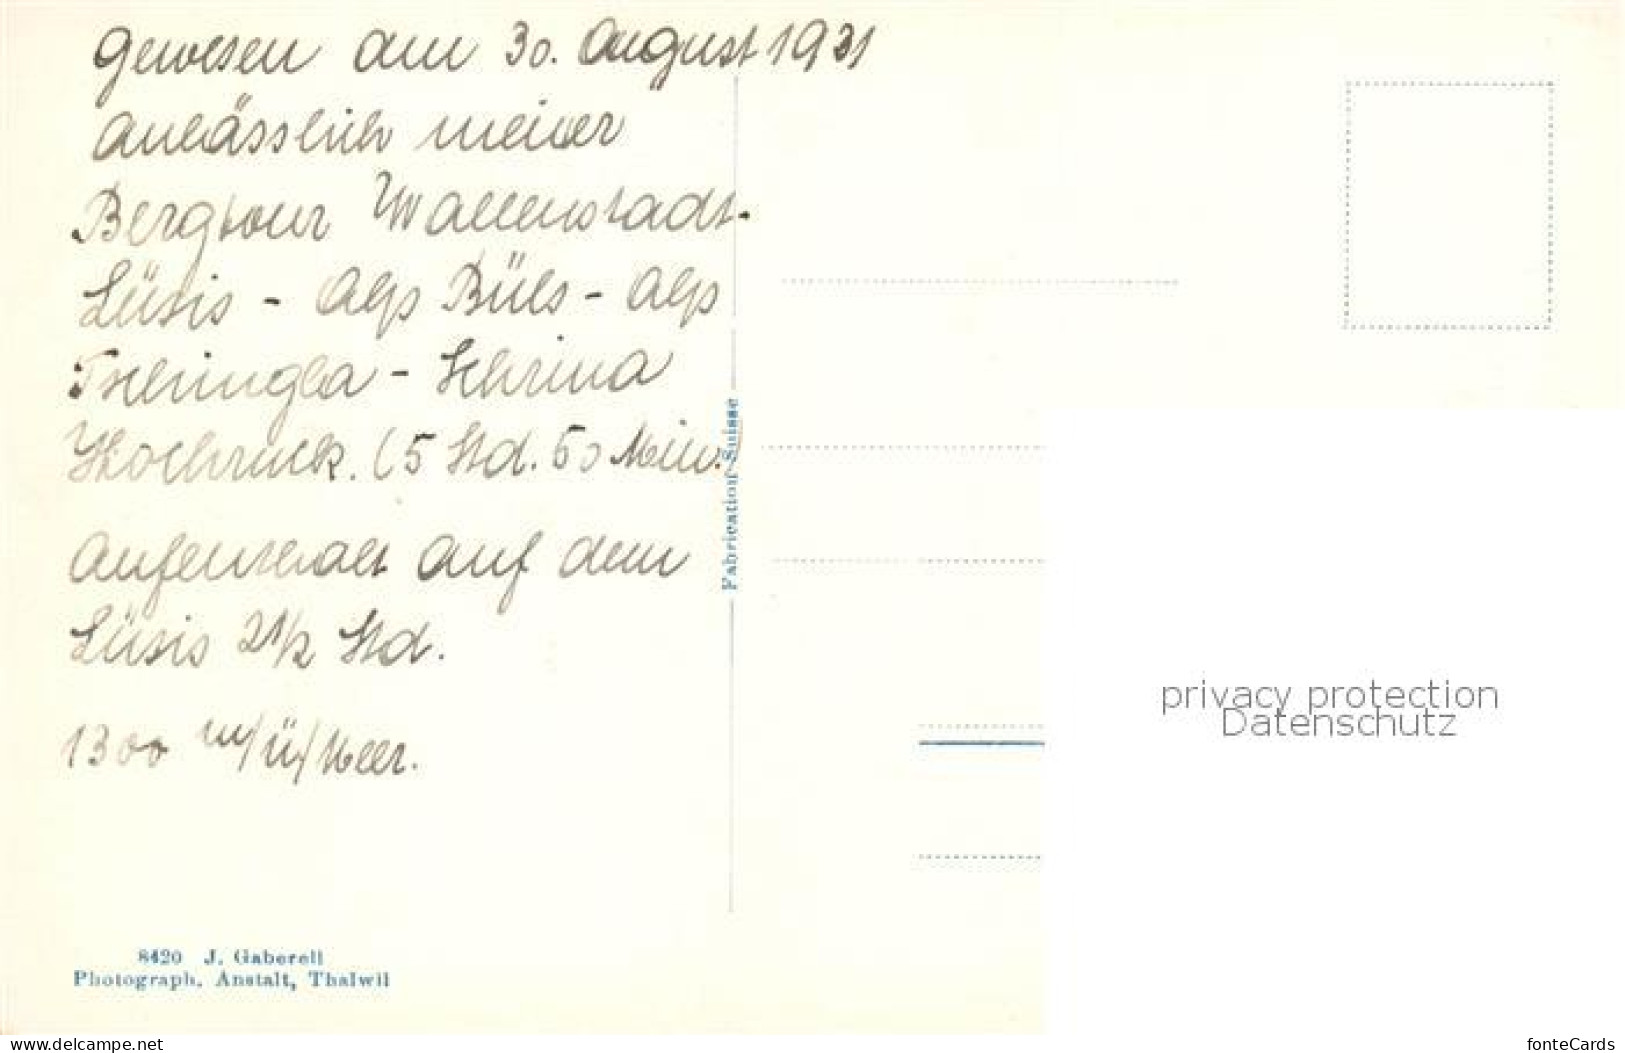 Gewesen am 30. August 1931
anlässlich meiner
Bergtour Wallenstadt-
Lüsis - Alp Büls - Alp
Tschingla - Schrina
Hochruck. (5 Std. 50 Min.)
Aufenthalt auf dem
Lüsis 2 1/2 Std.
1300 m/ü/Meer.
Fabrication Suisse
8420 J. Gaberell
Photograph. Anstalt, Thalwil
privacy protection
Datenschutz
www.delcampe.net
fonteCards